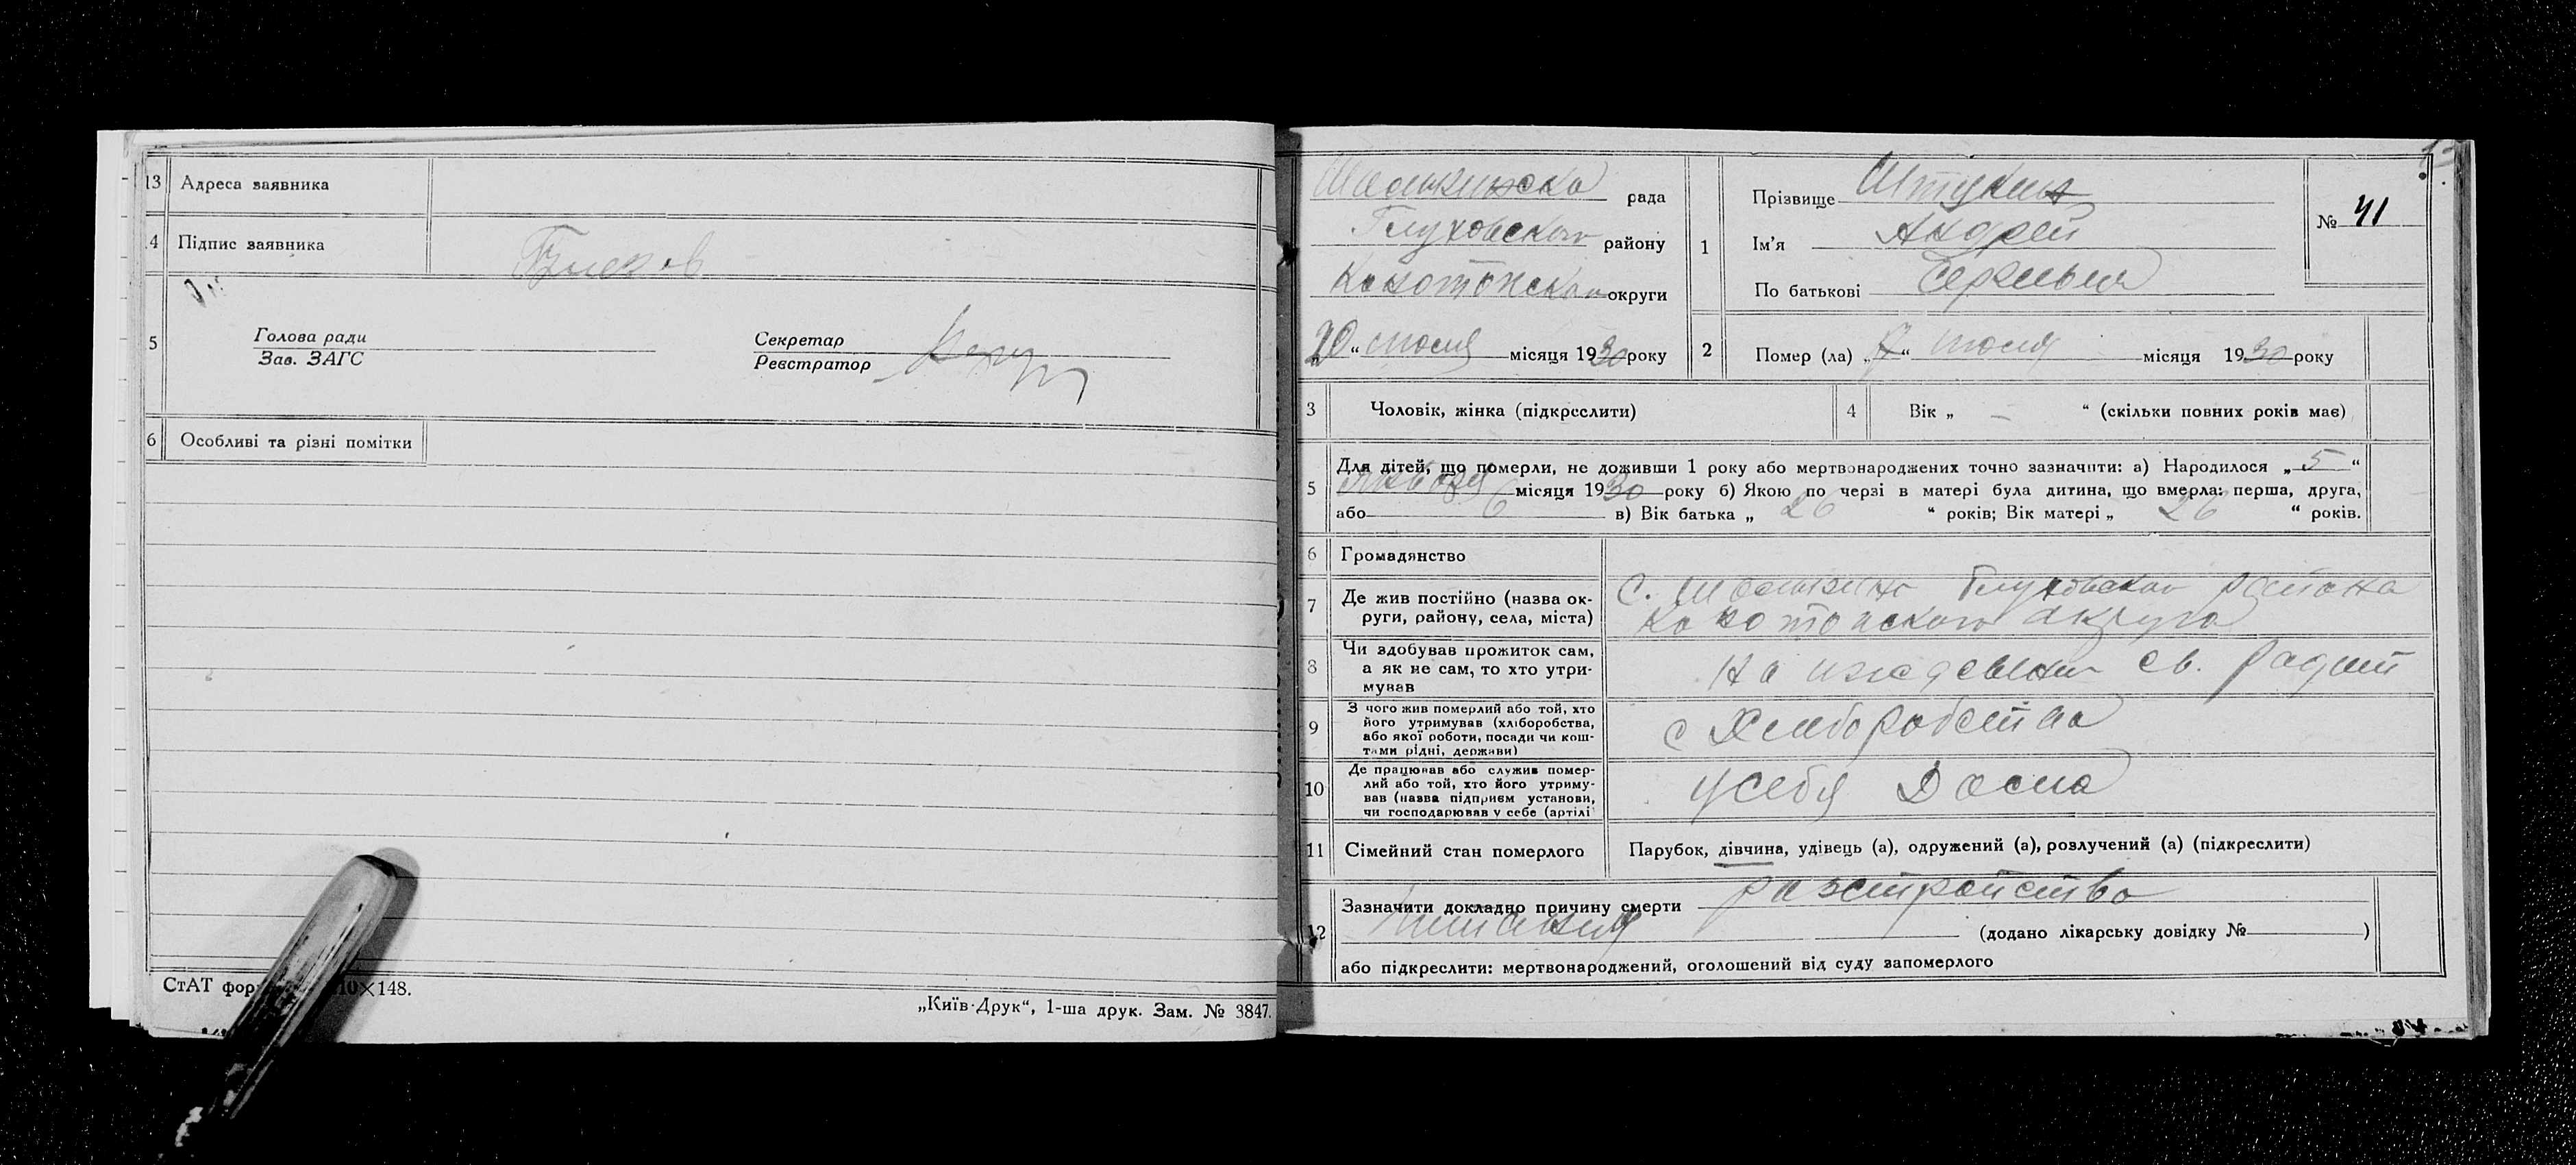 13 Адреса заявника
14 Підпис заявника
5
Голова ради
Зав. ЗАГС
Секретар
Реєстратор
6 Особливі та різні помітки
СтАТ фор 10×148.
„Київ-Друк“, 1-ша друк. Зам. № 3847.
рада
Глуховского району
Конотопского округи
„20“ июля місяця 1930 року
1
Прізвище Штукин
Ім'я Андрей
По батькові
№ 41
2 Помер (ла) „7“ июля місяця 1930 року
3 Чоловік, жінка (підкреслити)
4 Вік „ – “ (скільки повних років має)
5 Для дітей, що померли, не доживши 1 року або мертвонароджених точно зазначити: а) Народилося „5“
января місяця 1930 року б) Якою по черзі в матері була дитина, що вмерла: перша, друга,
або 6 в) Вік батька „26“ років; Вік матері „26“ років.
6 Громадянство
7 Де жив постійно (назва округи, району, села, міста)
с. Глуховского района
Конотопского округа
8 Чи здобував прожиток сам,
а як не сам, то хто утри-
мував
На иждевении
9 З чого жив померлий або той, хто
його утримував (хліборобства,
або якої роботи, посади чи кош-
тами рідні, держави)
с Хлеборобства
10 Де працював або служив помер-
лий або той, хто його утриму-
вав (назва підприєм установи,
чи господарював у себе (артілі
у себя Дома
11 Сімейний стан померлого
Парубок, дівчина, удівець (а), одружений (а), розлучений (а) (підкреслити)
12 Зазначити докладно причину смерти разстройство
питания (додано лікарську довідку № )
або підкреслити: мертвонароджений, оголошений від суду запомерлого